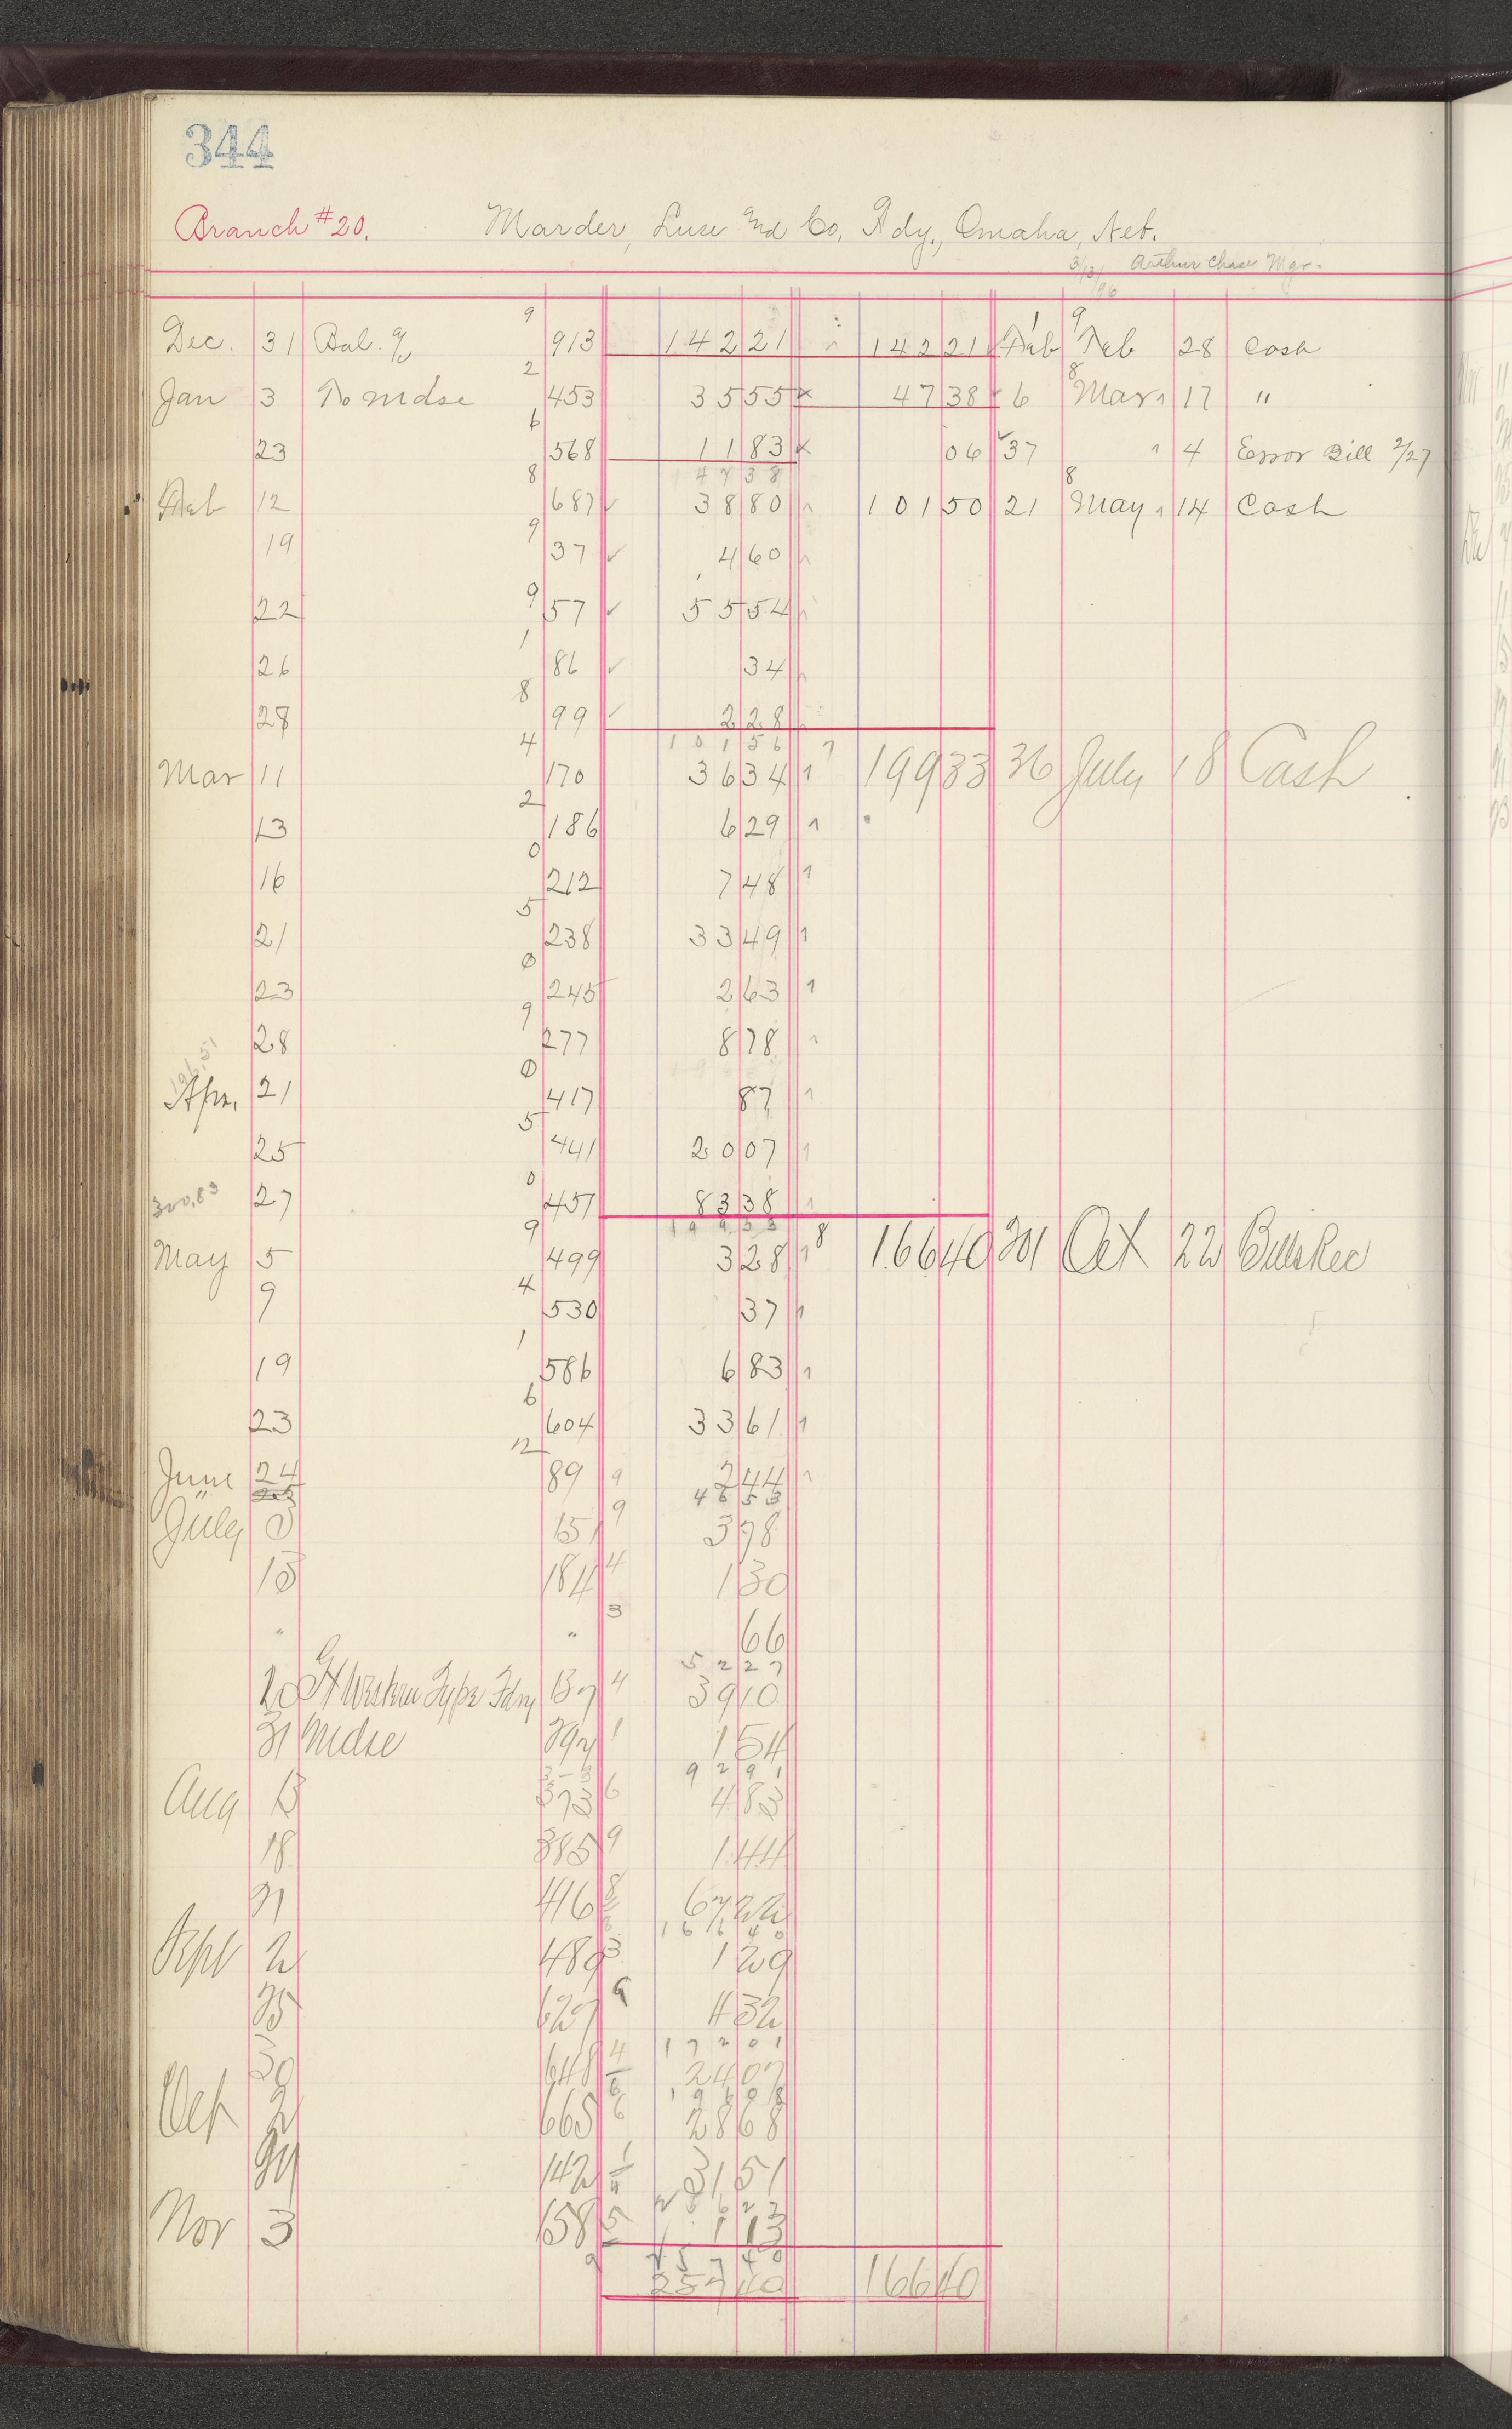 344
Branch #20. Marder, Luse and Co, Fdy., Omaha, Neb.
3/13/96 Arthur Chase Mgr.
Dec. 31 Bal. 9 913 142 21 142 21 1 Feb 9 Feb 28 Cash
Jan 3 To mdse 2 453 35 55 x 47 38 6 8 Mar 17 "
23 6 568 11 83 x 06 37 " 4 Error Bill 2/27
47 38
Feb 12 8 687 38 80 101 50 21 8 May 14 Cash
19 9 37 4 60
22 9 57 55 54
26 1 86 34
28 8 99 2 28
101 56
Mar 11 4 170 36 34 199 33 36 July 18 Cash
13 2 186 6 29
16 0 212 7 48
21 5 238 33 49
23 0 245 2 63
28 9 277 8 78
196,51
Apr. 21 0 417 87
25 5 441 20 07
300,83 27 0 457 83 38
199 33
May 5 9 499 3 28 8 166 40 301 Oct 22 Bills Rec
9 4 530 37
19 1 586 6 83
23 6 604 33 61
June 24 12 89 9 2 44
46 53
July 3 151 9 3 78
13 184 4 1 30
" " 3 66
52 27
20 Gt Western Type Fdry 137 4 39 10
31 Mdse 397 1 1 54
92 91
Aug 13 373 6 4 83
18 385 9 1 44
31 416 8 67 22
166 40
Sept 2 489 3 1 29
25 627 9 4 32
172 01
30 648 4 24 07
196 08
Oct 2 665 6 28 68
142 31 51
256 27
Nov 3 158 5 1 13
257 40
257 40 166 40